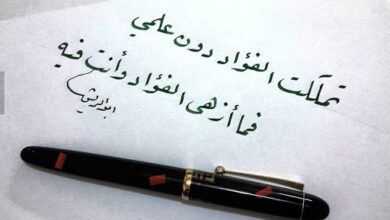 تملكت الفؤاد دون علمي
فما أزهى الفؤاد وأنت فيه